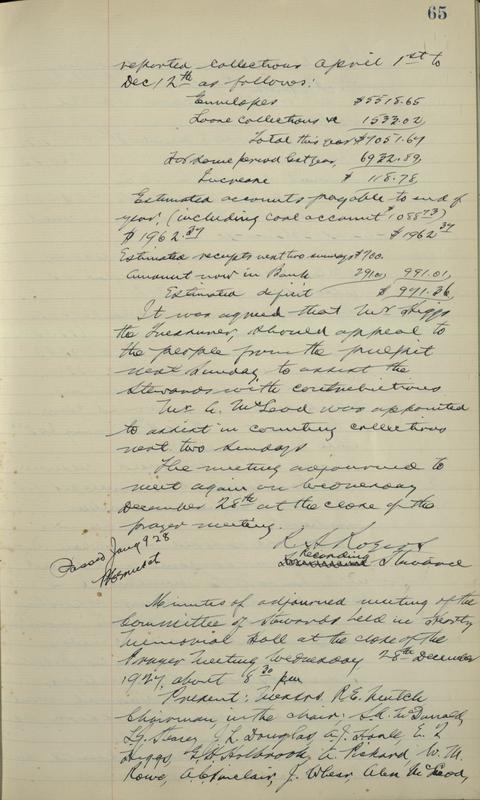 65
reported collections April 1st to
Dec 12th as follows:
Envelopes $5518.65
Loose collections &c 1533.02,
Total this year $7051.67
For same period last year, 6932.89,
Increase $ 118.78,
Estimated accounts payable to end of
year, (including coal account $1088.73)
$1962.37 $1962.37
Estimated receipts next two sundays $700.
Amount now in Bank 291.01, 991.01,
Estimated deficit $ 971.36,
It was agreed that Mr Higgs
the Treasurer, should appeal to
the people from the pulpit
next Sunday to assist the
Stewards with contributions
Mr. A. McLeod was appointed
to assist in counting collections
next two Sundays
The meeting adjourned to
meet again on Wednesday
December 28th at the close of the
prayer meeting.
Rogers
Passed Jany 9 28
Recording Steward
Minutes of adjourned meeting of the
Committee of Stewards held in
Memorial Hall at the close of the
Prayer Meeting Wednesday 28th December
1927, about 8 30 pm
Present: Messrs. R.E.
Chairman, in the chair; McDonald,
L.G. J. L. Douglas, A.J. E. L
Higgs, Holbrook, A. Pickard W. M.
Rowe, A.C. Sinclair, J. Alex McLeod,